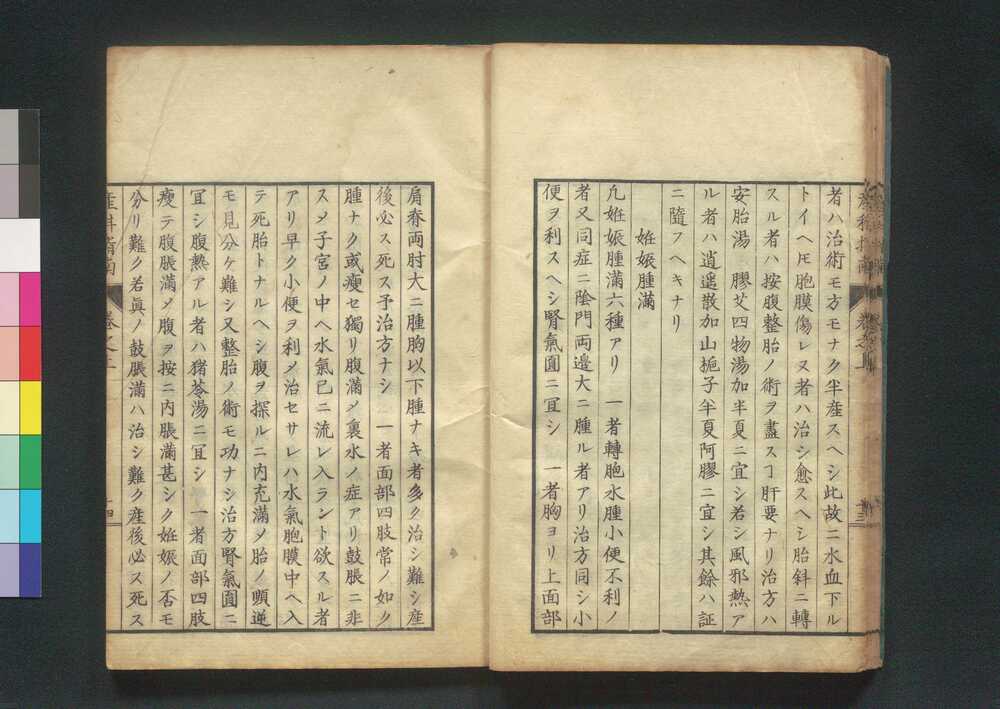 者ハ治術モ方モナク半産スヘシ此故ニ水血下ル
トイヘ𪜈胞膜傷レヌ者ハ治シ愈スヘシ胎斜ニ轉
スル者ハ按腹整胎ノ術ヲ盡スヿ肝要ナリ治方ハ
安胎湯 膠艾四物湯加半夏ニ宜シ若シ風邪熱ア
ル者ハ逍遥散加山梔子半夏阿膠ニ宜シ其餘ハ証
ニ隨フヘキナリ
妊娠腫滿
凡妊娠腫滿六種アリ 一者轉胞水腫小便不利ノ
者又同症ニ陰門両邉大ニ腫ル者アリ治方同シ小
便ヲ利スヘシ腎氣圓ニ冝シ 一者胸ヨリ上面部
肩脊両肘大ニ腫胸以下腫ナキ者多ク治シ難シ産
後必ス死ス予治方ナシ 一者面部四肢常ノ如ク
腫ナク或瘦セ獨リ腹滿メ裏水ノ症アリ鼓脹ニ非
スメ子宮ノ中ヘ水氣已ニ流レ入ラント欲スル者
アリ早ク小便ヲ利メ治セサレハ水氣胞膜中ヘ入
テ死胎トナルヘシ腹ヲ探ルニ内充滿メ胎ノ順逆
モ見分ケ難シ又整胎ノ術モ功ナシ治方腎氣圓ニ
冝シ腹熱アル者ハ猪苓湯ニ冝シ 一者面部四肢
瘦テ腹脹滿メ腹ヲ按ニ内脹滿甚シク妊娠ノ否モ
分リ難ク若眞ノ鼓脹滿ハ治シ難ク産後必ス死ス
産科指南 卷之上